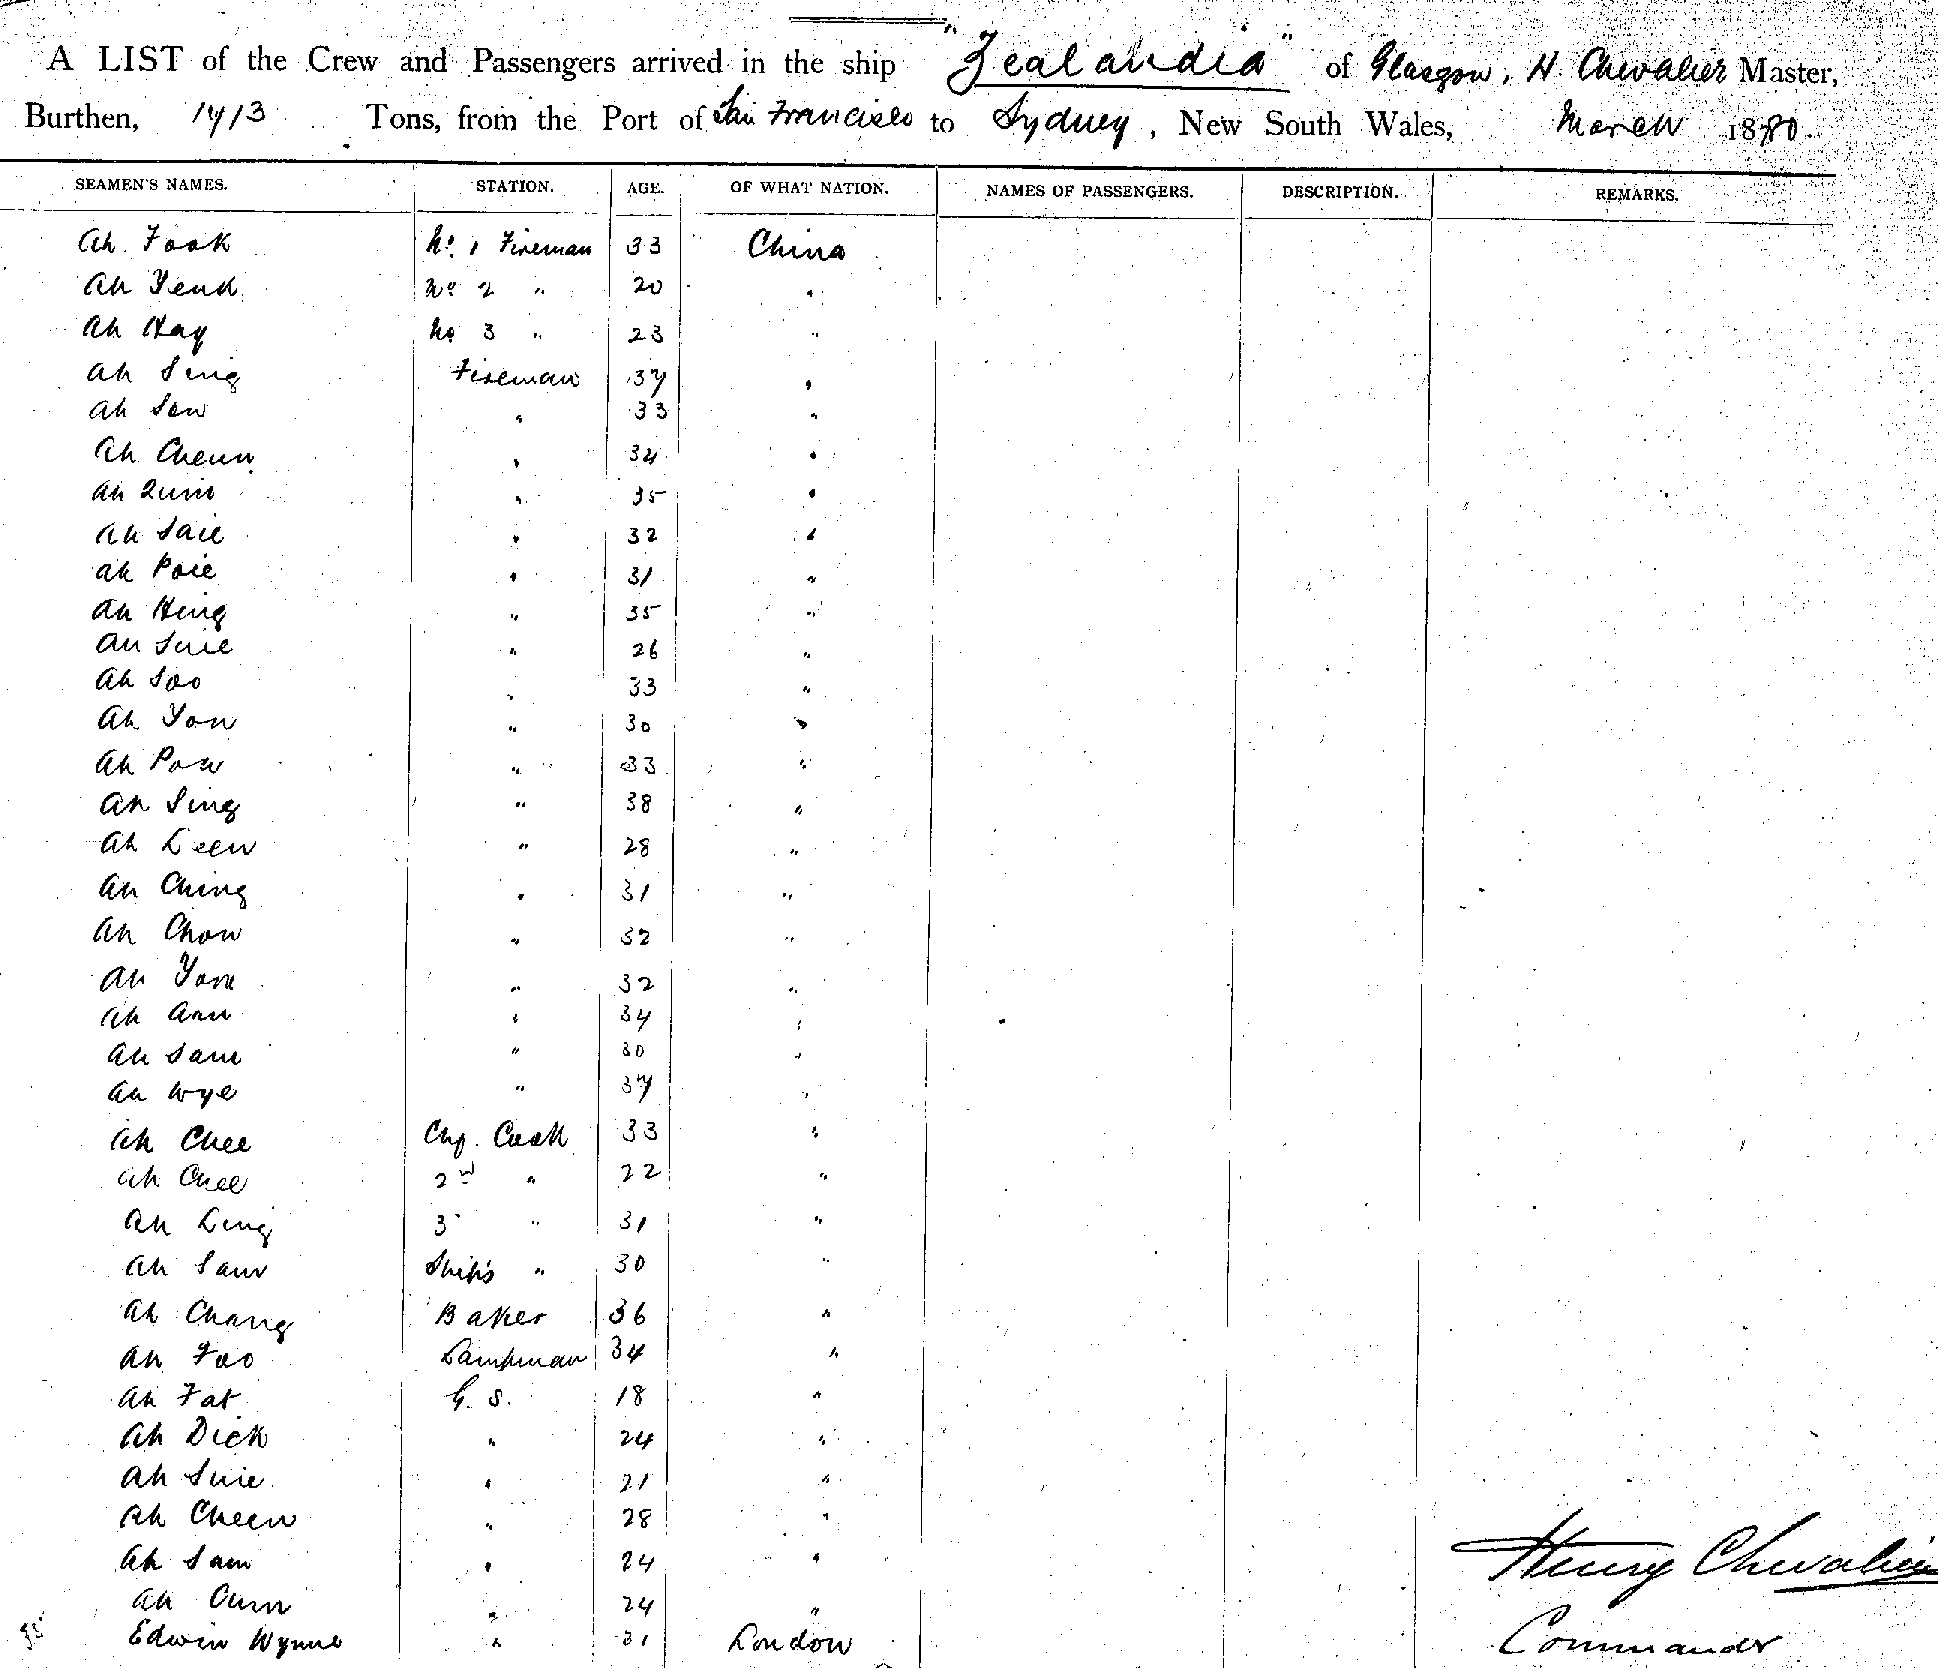 A LIST of the Crew and Passengers arrived in the ship "Zealandia" of Glasgow, H Chevalier Master,
Burthen, 1413 Tons, from the Port of San Francisco to Sydney, New South Wales, March 1880.
SEAMEN'S NAMES. STATION. AGE. OF WHAT NATION. NAMES OF PASSENGERS. DESCRIPTION. REMARKS.
Ah Fook No. 1 Fireman 33 China
Ah No 2 " 20 "
Ah Hay No 3 " 23 "
Ah Sing Fireman 37 "
Ah Sow " 33 "
Ah Cheun " 34 "
Ah Quin " 35 "
Ah Saie " 32 "
Ah Poie " 31 "
Ah Hing " 35 "
Ah Suie " 26 "
Ah Soo " 33 "
Ah You " 30 "
Ah Pow " 33 "
Ah Sing " 38 "
Ah Leen " 28 "
Ah Ching " 31 "
Ah Chow " 32 "
Ah Yow " 32 "
Ah Ann " 34 "
Ah Sam " 30 "
Ah Wye " 37 "
Ah Chee Chf. Cook 33 "
Ah Chee 2nd " 22 "
Ah Ling 3 " 31 "
Ah Sam Ship's " 30 "
Ah Chang Baker 36 "
Ah Foo Lampman 34 "
Ah Fat G. S. 18 "
Ah Dick " 24 "
Ah Suie " 21 "
Ah Cheen " 28 "
Ah Sam " 24 "
Ah " 24 "
Edwin Wynne " 31 London
Henry Chevalier
Commander